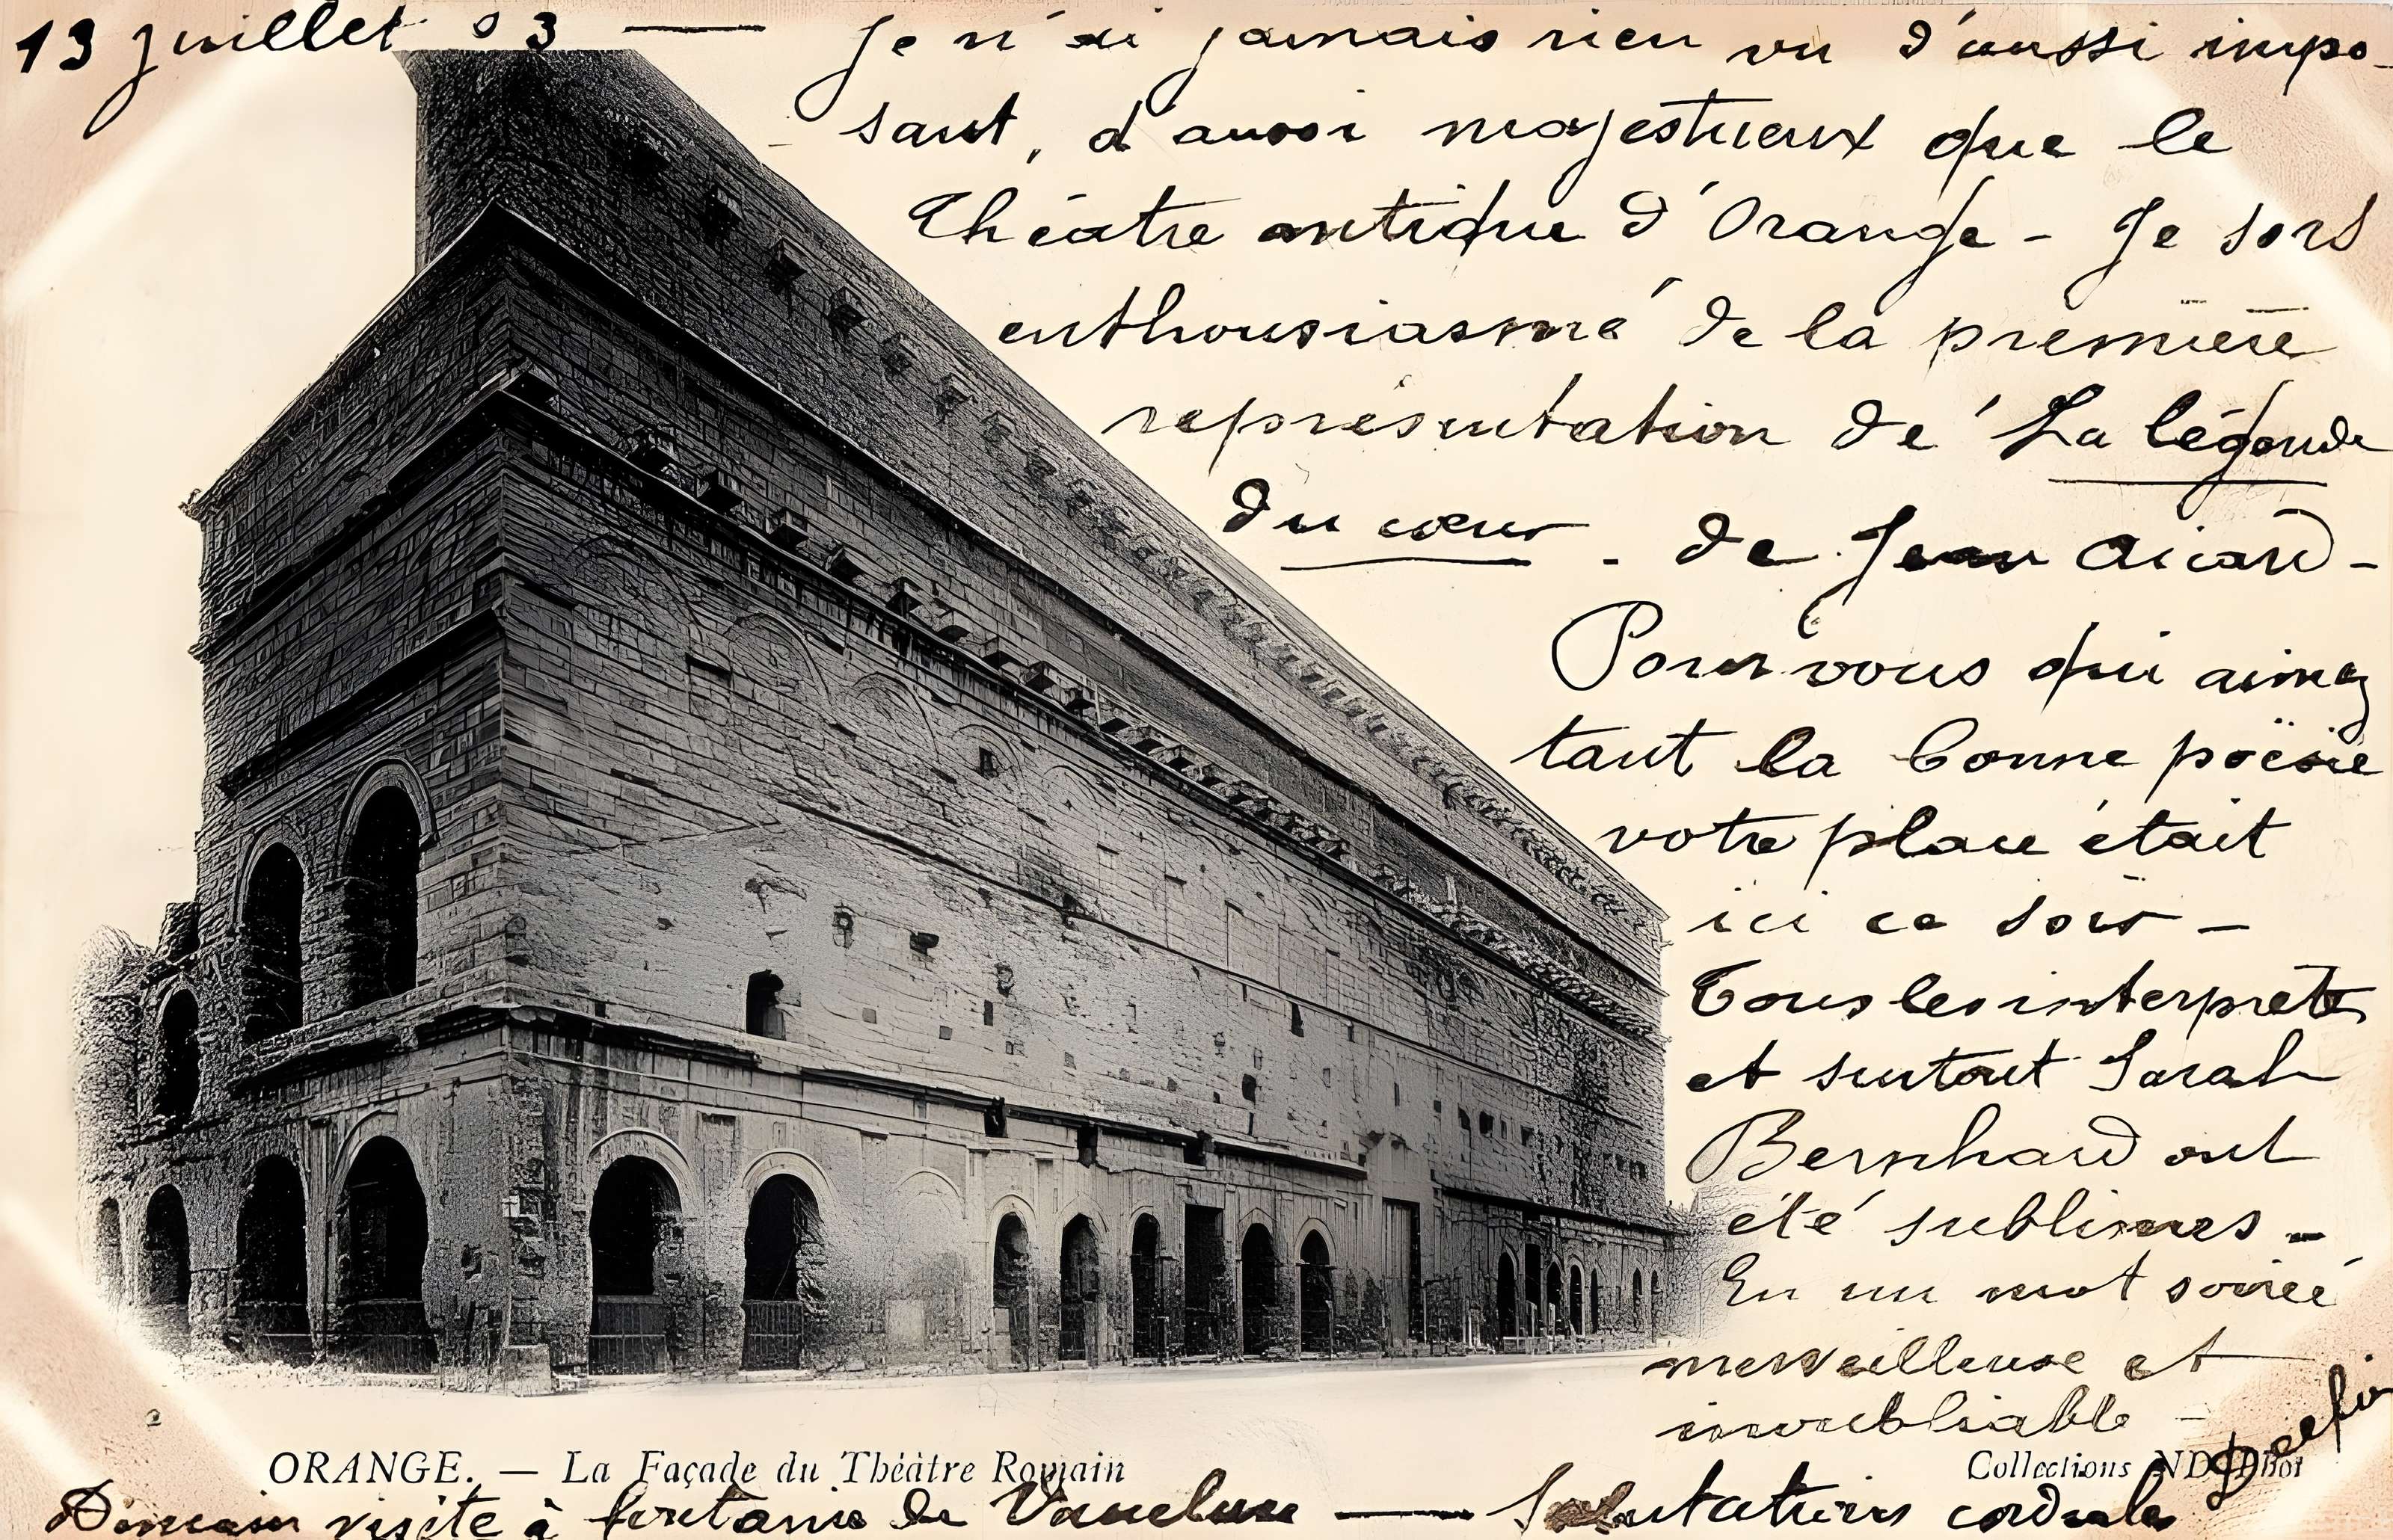 13 juillet 03 — Je n'ai jamais rien vu d'aussi impo-
sant, d'aussi majestueux que le
Théâtre antique d'Orange - Je sors
enthousiasmé de la première
représentation de 'La légende
du cœur - de Jean Aicard -
Pour vous qui aimez
tant la bonne poësie
votre place était
ici ce soir -
Tous les interprètes
et surtout Sarah
Bernhard ont
été sublimes -
En un mot soirée
merveilleuse et
inoubliable -
ORANGE. — La Façade du Théâtre Romain
Collections ND Phot
Demain visite à fontaine de Vaucluse — Salutations cordiales